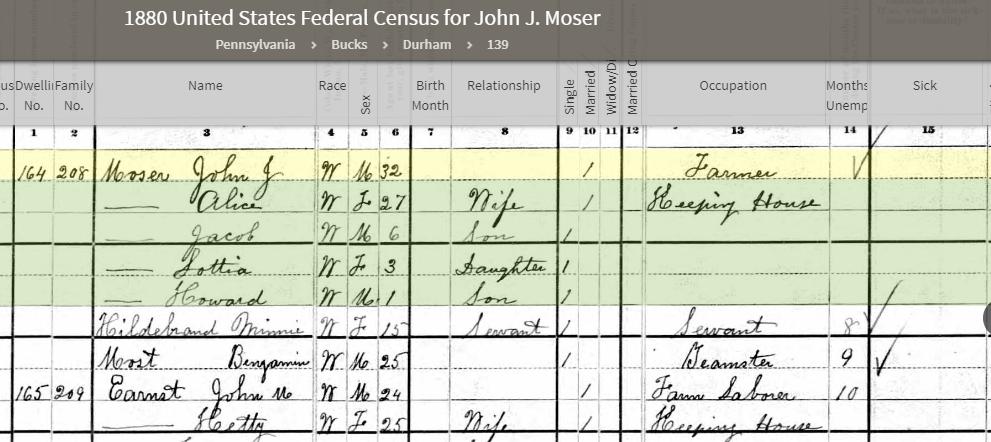 1880 United States Federal Census for John J. Moser
Pennsylvania > Bucks > Durham > 139
Dwelli Family Name Race Sex Birth Relationship Single Married Widow/Di Married Occupation Months Sick
No. No. Month Unemp
1 2 3 4 5 6 7 8 9 10 11 12 13 14 15
164 208 Moser John J W M 32 / Farmer
— Alice W F 27 Wife / Keeping House
— Jacob W M 6 Son /
— Lottia W F 3 Daughter /
— Howard W M 1 Son /
Hildebrand Minnie W F 15 Servant / Servant 8
Most Benjamin W M 25 / Teamster 9
165 209 Earnst John W M 24 / Farm Laborer 10
— Hetty W F 25 Wife / Keeping House